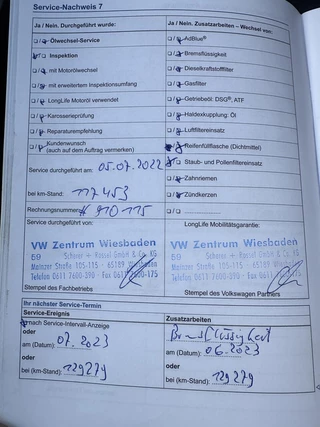 Service-Nachweis 7
Ja / Nein. Durchgeführt wurde:
Ja / Nein. Zusatzarbeiten – Wechsel von:
Ölwechsel-Service
AdBlue®
Inspektion
Bremsflüssigkeit
mit Motorölwechsel
Dieselkraftstofffilter
mit erweitertem Inspektionsumfang
Gasfilter
LongLife Motoröl verwendet
Getriebeöl: DSG®, ATF
Karosserieprüfung
Haldexkupplung: Öl
Reparaturempfehlung
Luftfiltereinsatz
Kundenwunsch
(auch auf dem Auftrag vermerken)
Reifenfüllflasche (Dichtmittel)
Service durchgeführt am: 05.07.2022
Staub- und Pollenfiltereinsatz
Zahnriemen
bei km-Stand: 117453
Zündkerzen
Rechnungsnummer: # 910 115
Service durchgeführt von:
LongLife Mobilitätsgarantie:
VW Zentrum Wiesbaden
59 Scherer + Kassel GmbH & Co. KG
Mainzer Straße 105-115 · 65189 Wiesbaden
Telefon 0611 7600-390 · Fax 0611 7600-175
Stempel des Fachbetriebs
VW Zentrum Wiesbaden
59 Scherer + Kassel GmbH & Co. KG
Mainzer Straße 105-115 · 65189 Wiesbaden
Telefon 0611 7600-390 · Fax 0611 7600-175
Stempel des Volkswagen Partners
Ihr nächster Service-Termin
Service-Ereignis
Zusatzarbeiten
nach Service-Intervall-Anzeige
Bremsflüssigkeit
oder
am (Datum): 07.2023
am (Datum): 06.2023
oder
oder
bei (km-Stand): 129279
bei (km-Stand): 129279